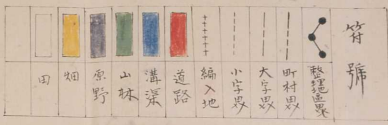 符號
整理地區界
町村界
大字界
小字界
編入地
道路
溝渠
山林
原野
畑
田